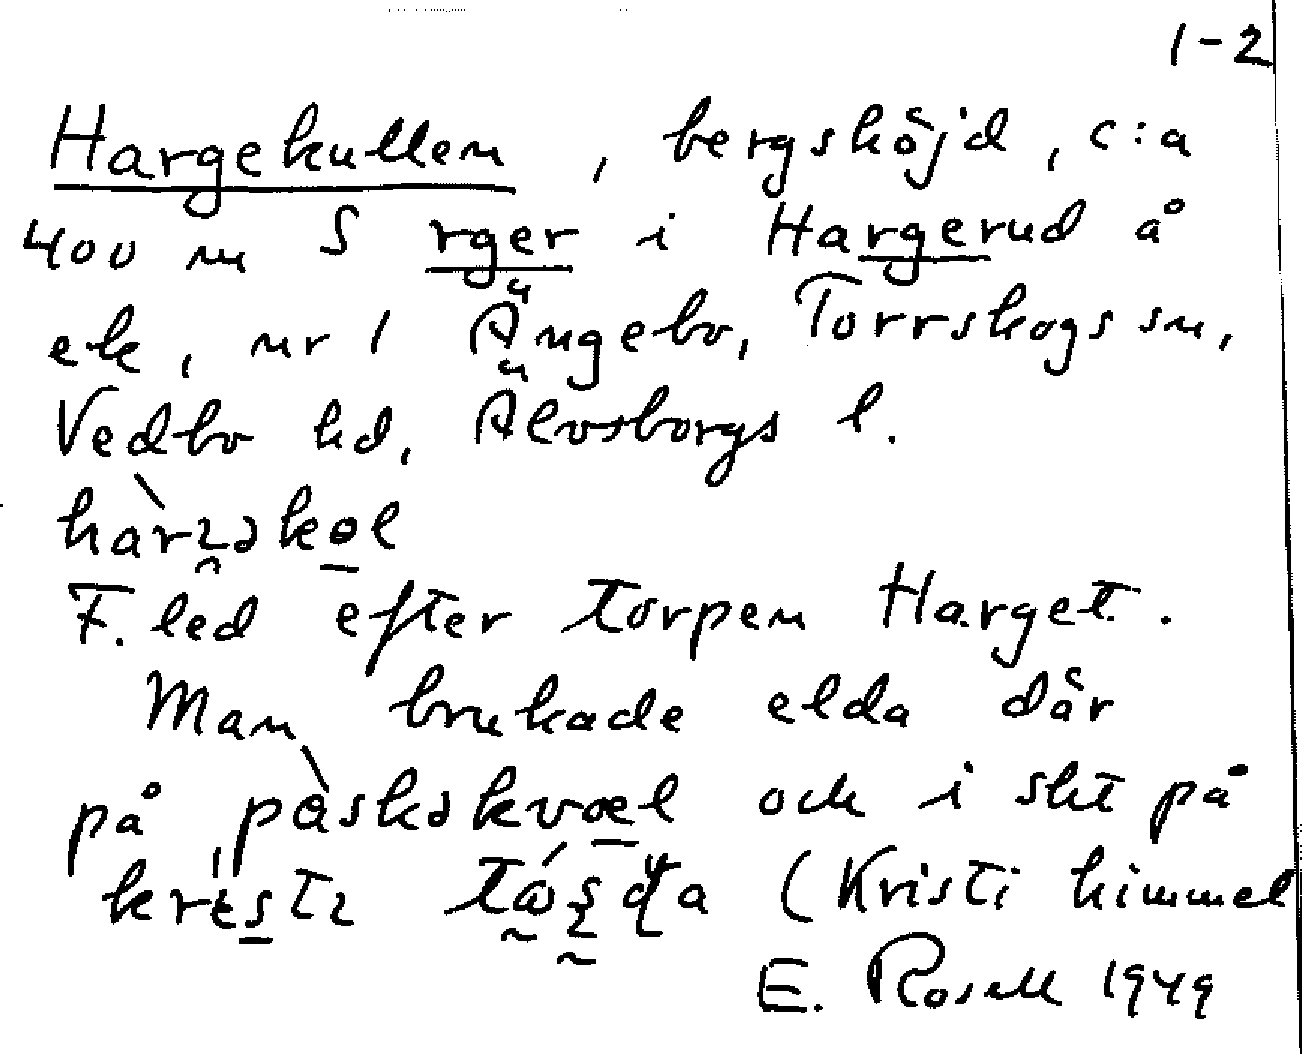 1-2
Hargekullen, bergshöjd, c:a
400 m S rger i Hargerud å
ek, nr 1 Ängebo, Torrskogs sn,
Vedbo hd, Älvsborgs l.
F. led efter torpen Harget.
Man brukade elda där
på påskəkvæl och i sht på
(Kristi himmel
E. Rosell 1949